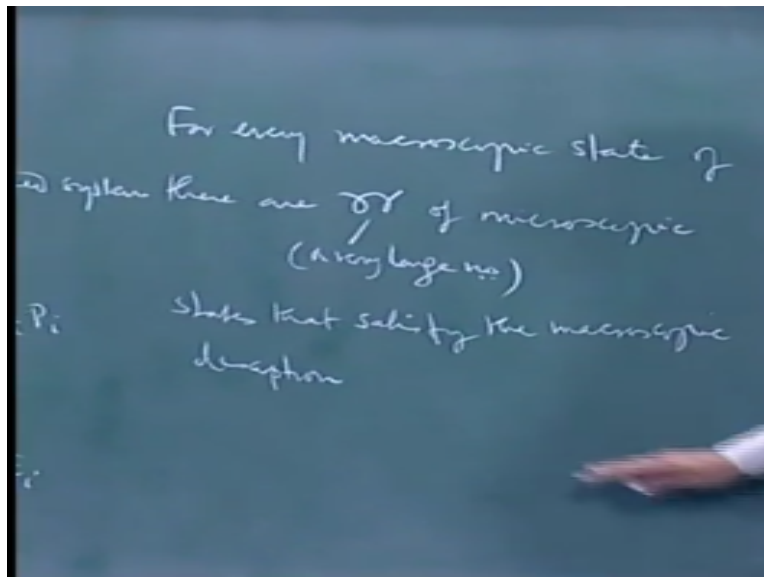 For every macroscopic state of
system there are of microscopic
(a very large no)
Pi
states that satisfy the macroscopic